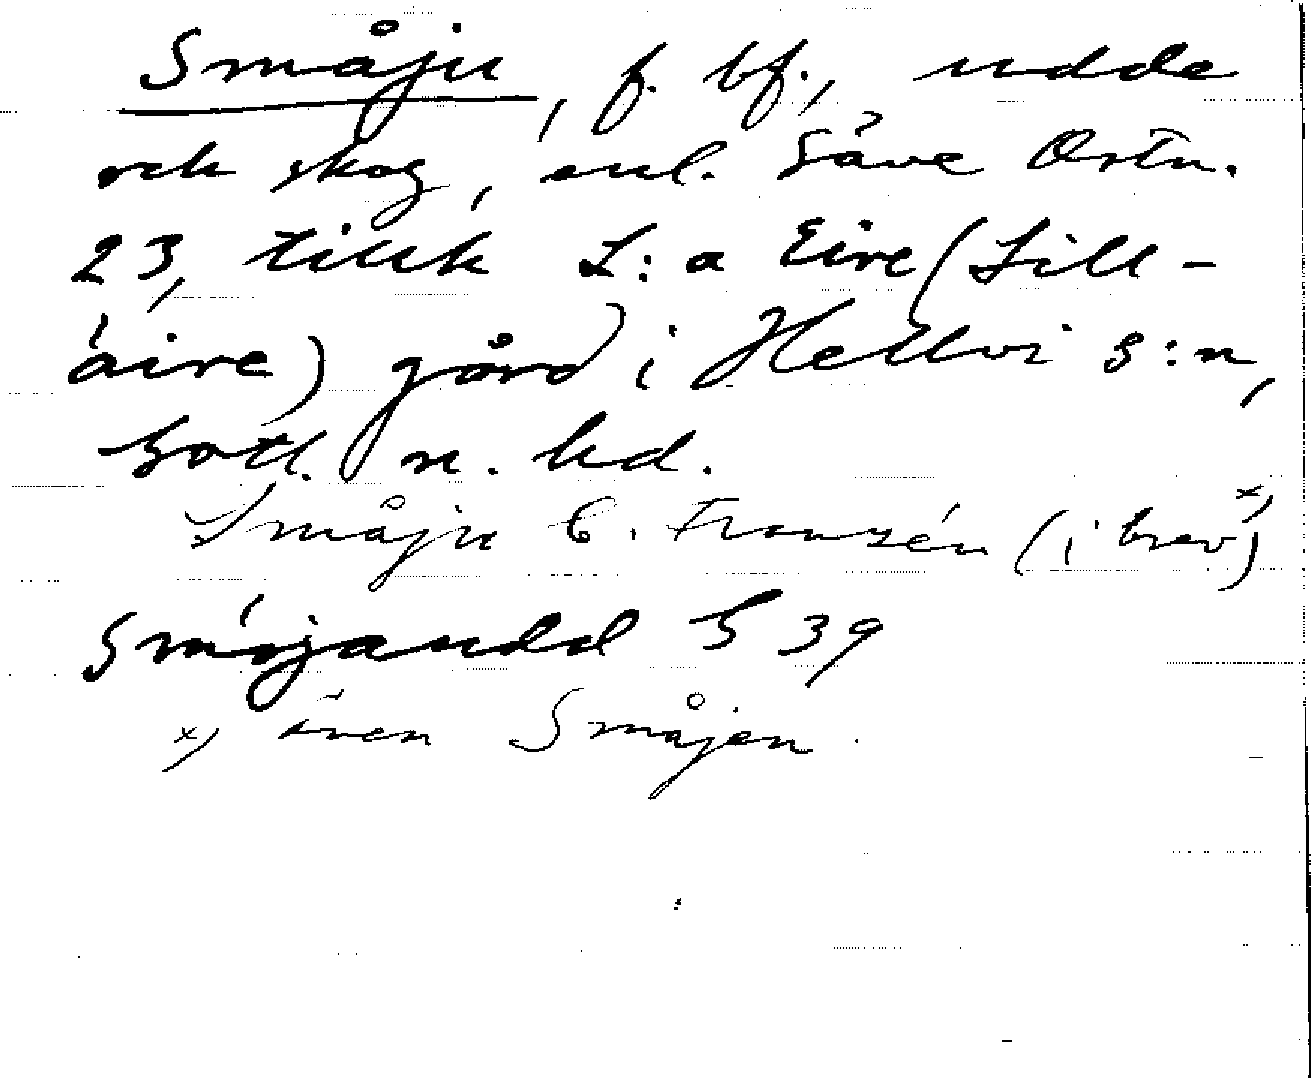 Småju, f. bf., udde
och skog, enl. Säve Ortn.
23, tillh L:a Eire (Lill-
áire) gård i Hellvi s:n,
Gotl. n. hd.
Småju C. Franzén (i brev x))
Smójaudd G 39
x) även Småjen.